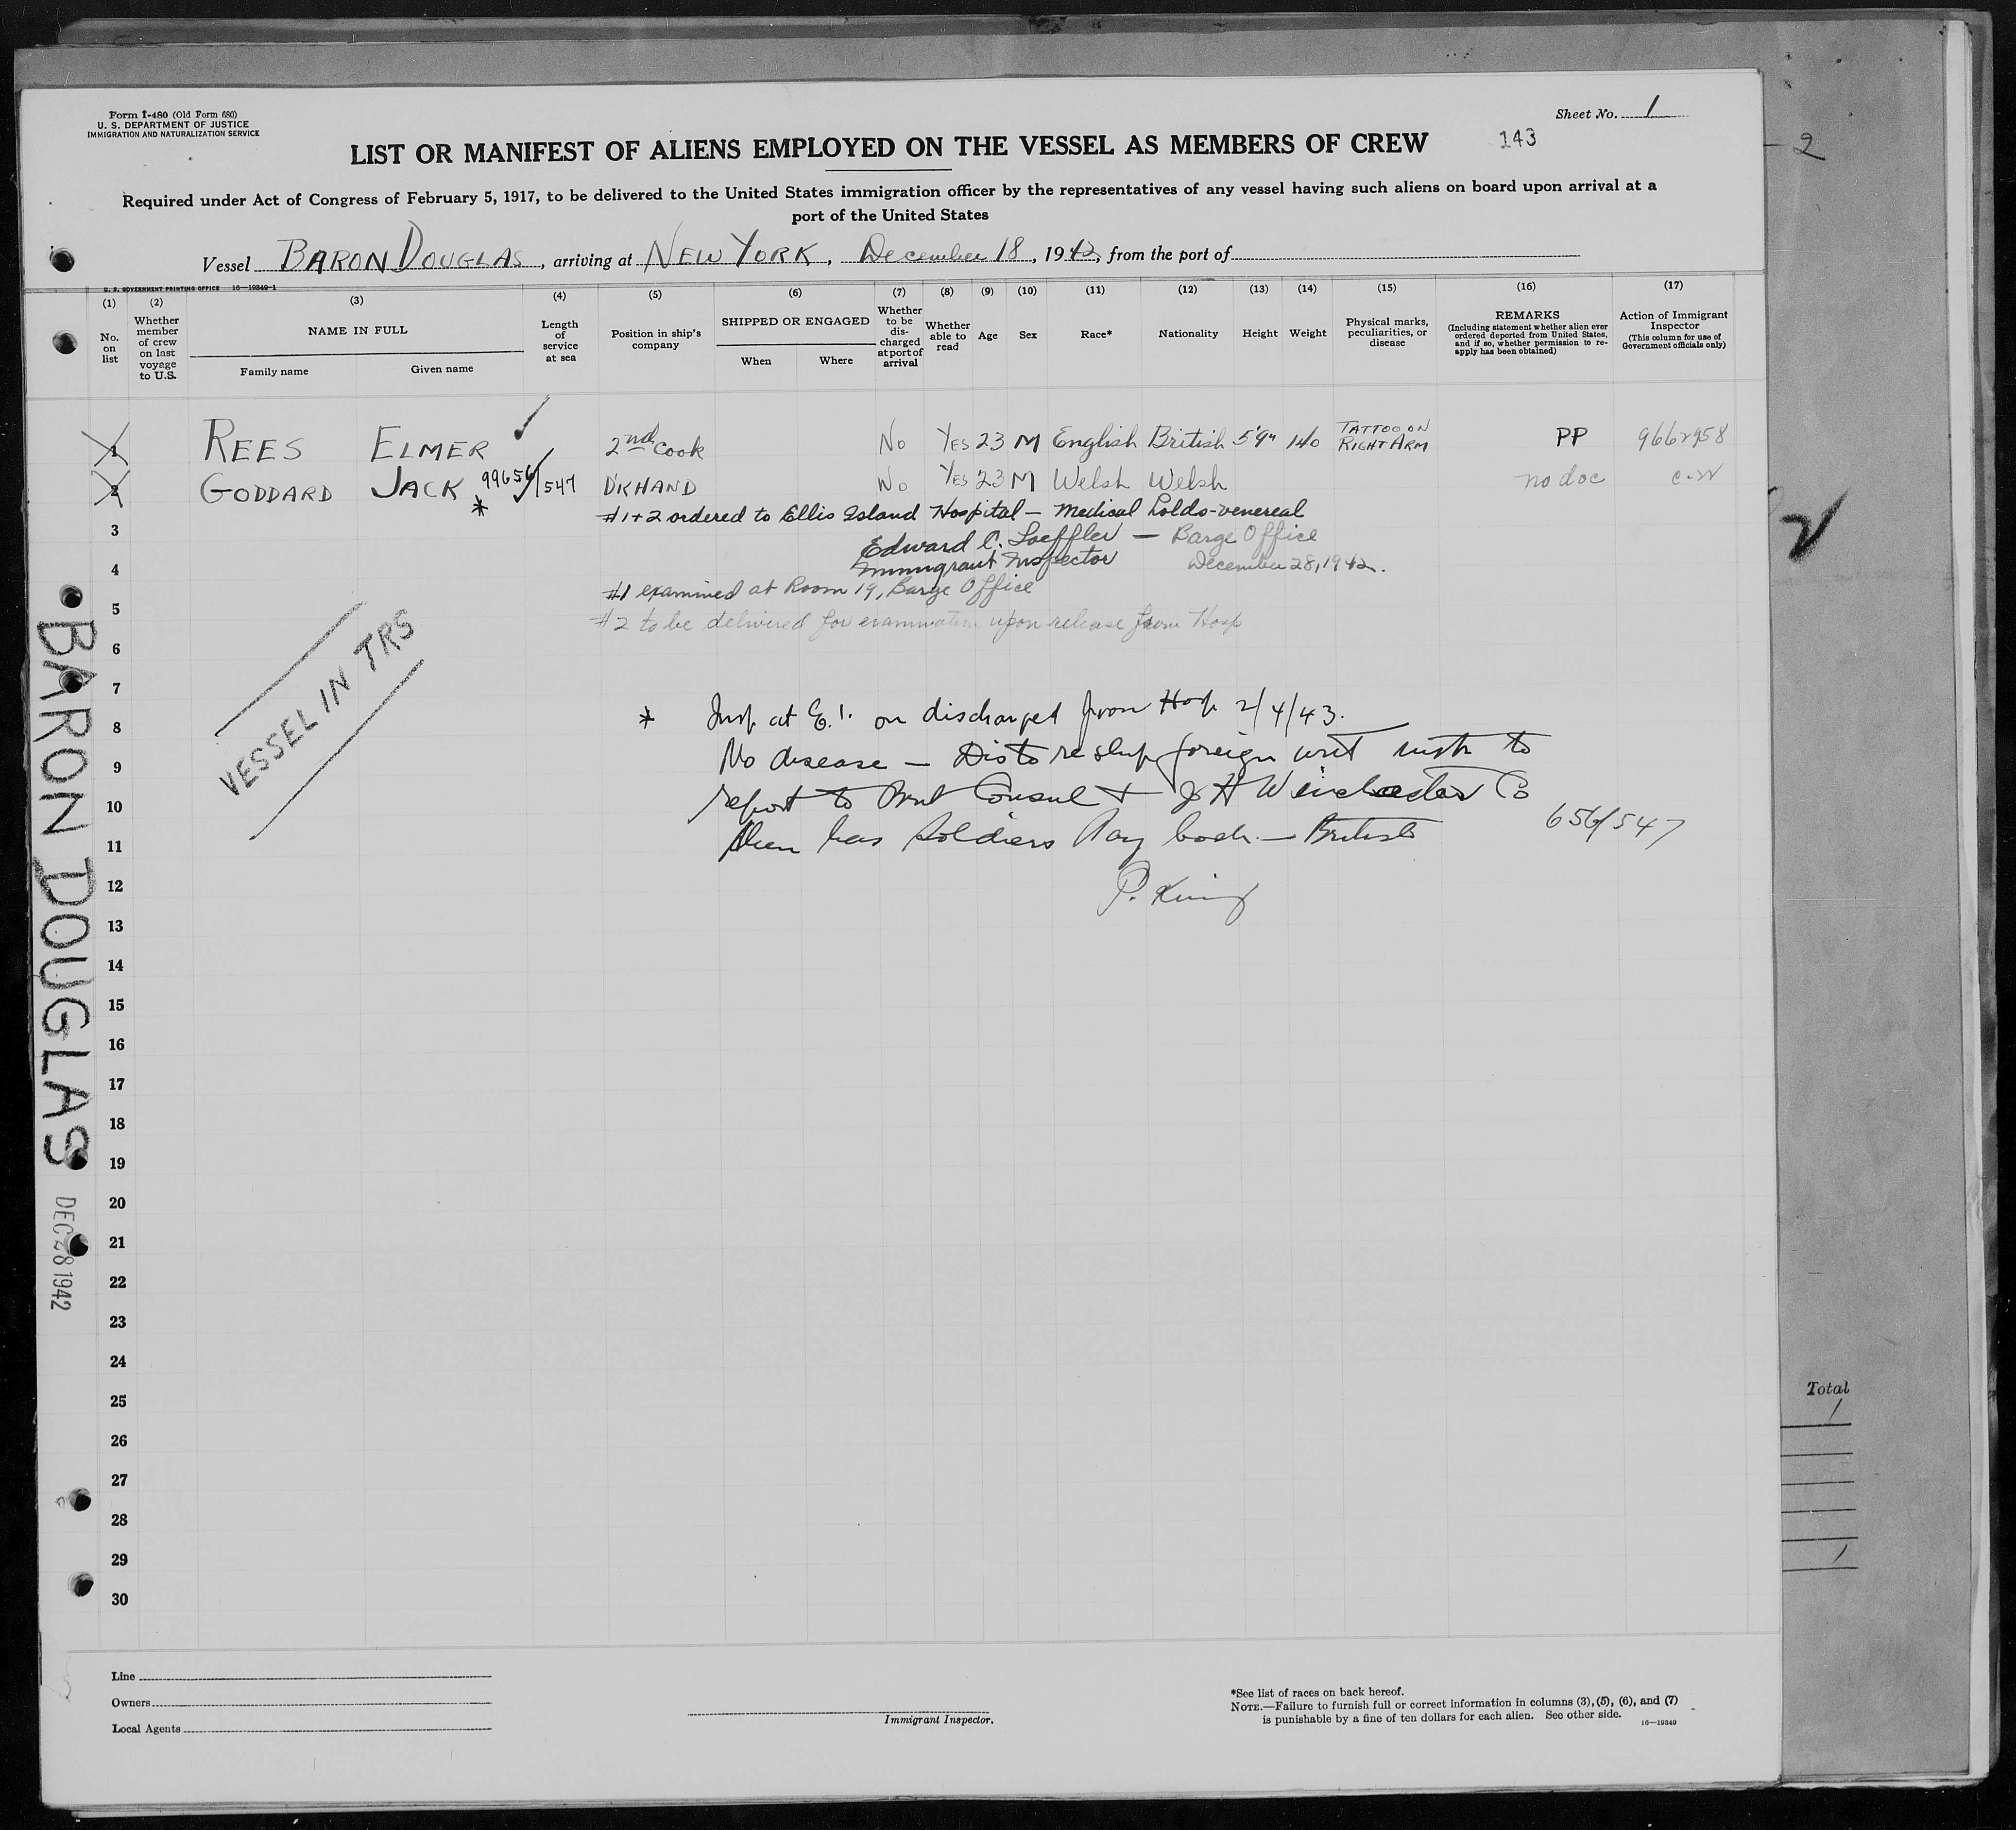 Form I-480 (Old Form 680)
U. S. DEPARTMENT OF JUSTICE
IMMIGRATION AND NATURALIZATION SERVICE
Sheet No. 1
LIST OR MANIFEST OF ALIENS EMPLOYED ON THE VESSEL AS MEMBERS OF CREW
143
2
Required under Act of Congress of February 5, 1917, to be delivered to the United States immigration officer by the representatives of any vessel having such aliens on board upon arrival at a
port of the United States
Vessel BARON DOUGLAS, arriving at NEW YORK, December 18, 1942, from the port of
U. S. GOVERNMENT PRINTING OFFICE 16—19349-1
(1) No. on list
(2) Whether member of crew on last voyage to U.S.
(3) NAME IN FULL
Family name Given name
(4) Length of service at sea
(5) Position in ship's company
(6) SHIPPED OR ENGAGED
When Where
(7) Whether to be discharged at port of arrival
(8) Whether able to read
(9) Age
(10) Sex
(11) Race*
(12) Nationality
(13) Height
(14) Weight
(15) Physical marks, peculiarities, or disease
(16) REMARKS
(Including statement whether alien ever ordered deported from United States, and if so, whether permission to re-apply has been obtained)
(17) Action of Immigrant Inspector
(This column for use of Government officials only)
1 REES ELMER 2nd Cook No YES 23 M English British 5'9" 140 TATTOO ON RIGHT ARM PP 9662958
2 GODDARD JACK * 99656/547 D'KHAND No YES 23 M Welsh Welsh no doc
#1+2 ordered to Ellis Island Hospital — Medical holds-venereal
3
Edward C. Loeffler — Barge Office
Immigrant Inspector December 28, 1942.
4
#1 examined at Room 19, Barge Office
5
#2 to be delivered for examination upon release from Hosp
6
VESSEL IN TRS
7
* Insp at E.I. on discharged from Hosp 2/4/43.
8
No disease — Dis to reship foreign writ instr to
9
report to Brit Consul + J H Winchester Co
10
656/547
Alien has Soldiers Pay book — British
11
P. King
12
13
14
15
16
17
18
19
20
21
22
23
24
25
26
27
28
29
30
BARON DOUGLAS
DEC 28 1942
Total
1
1
Line
Owners
Local Agents
Immigrant Inspector.
*See list of races on back hereof.
NOTE.—Failure to furnish full or correct information in columns (3), (5), (6), and (7)
is punishable by a fine of ten dollars for each alien. See other side.
16—19349